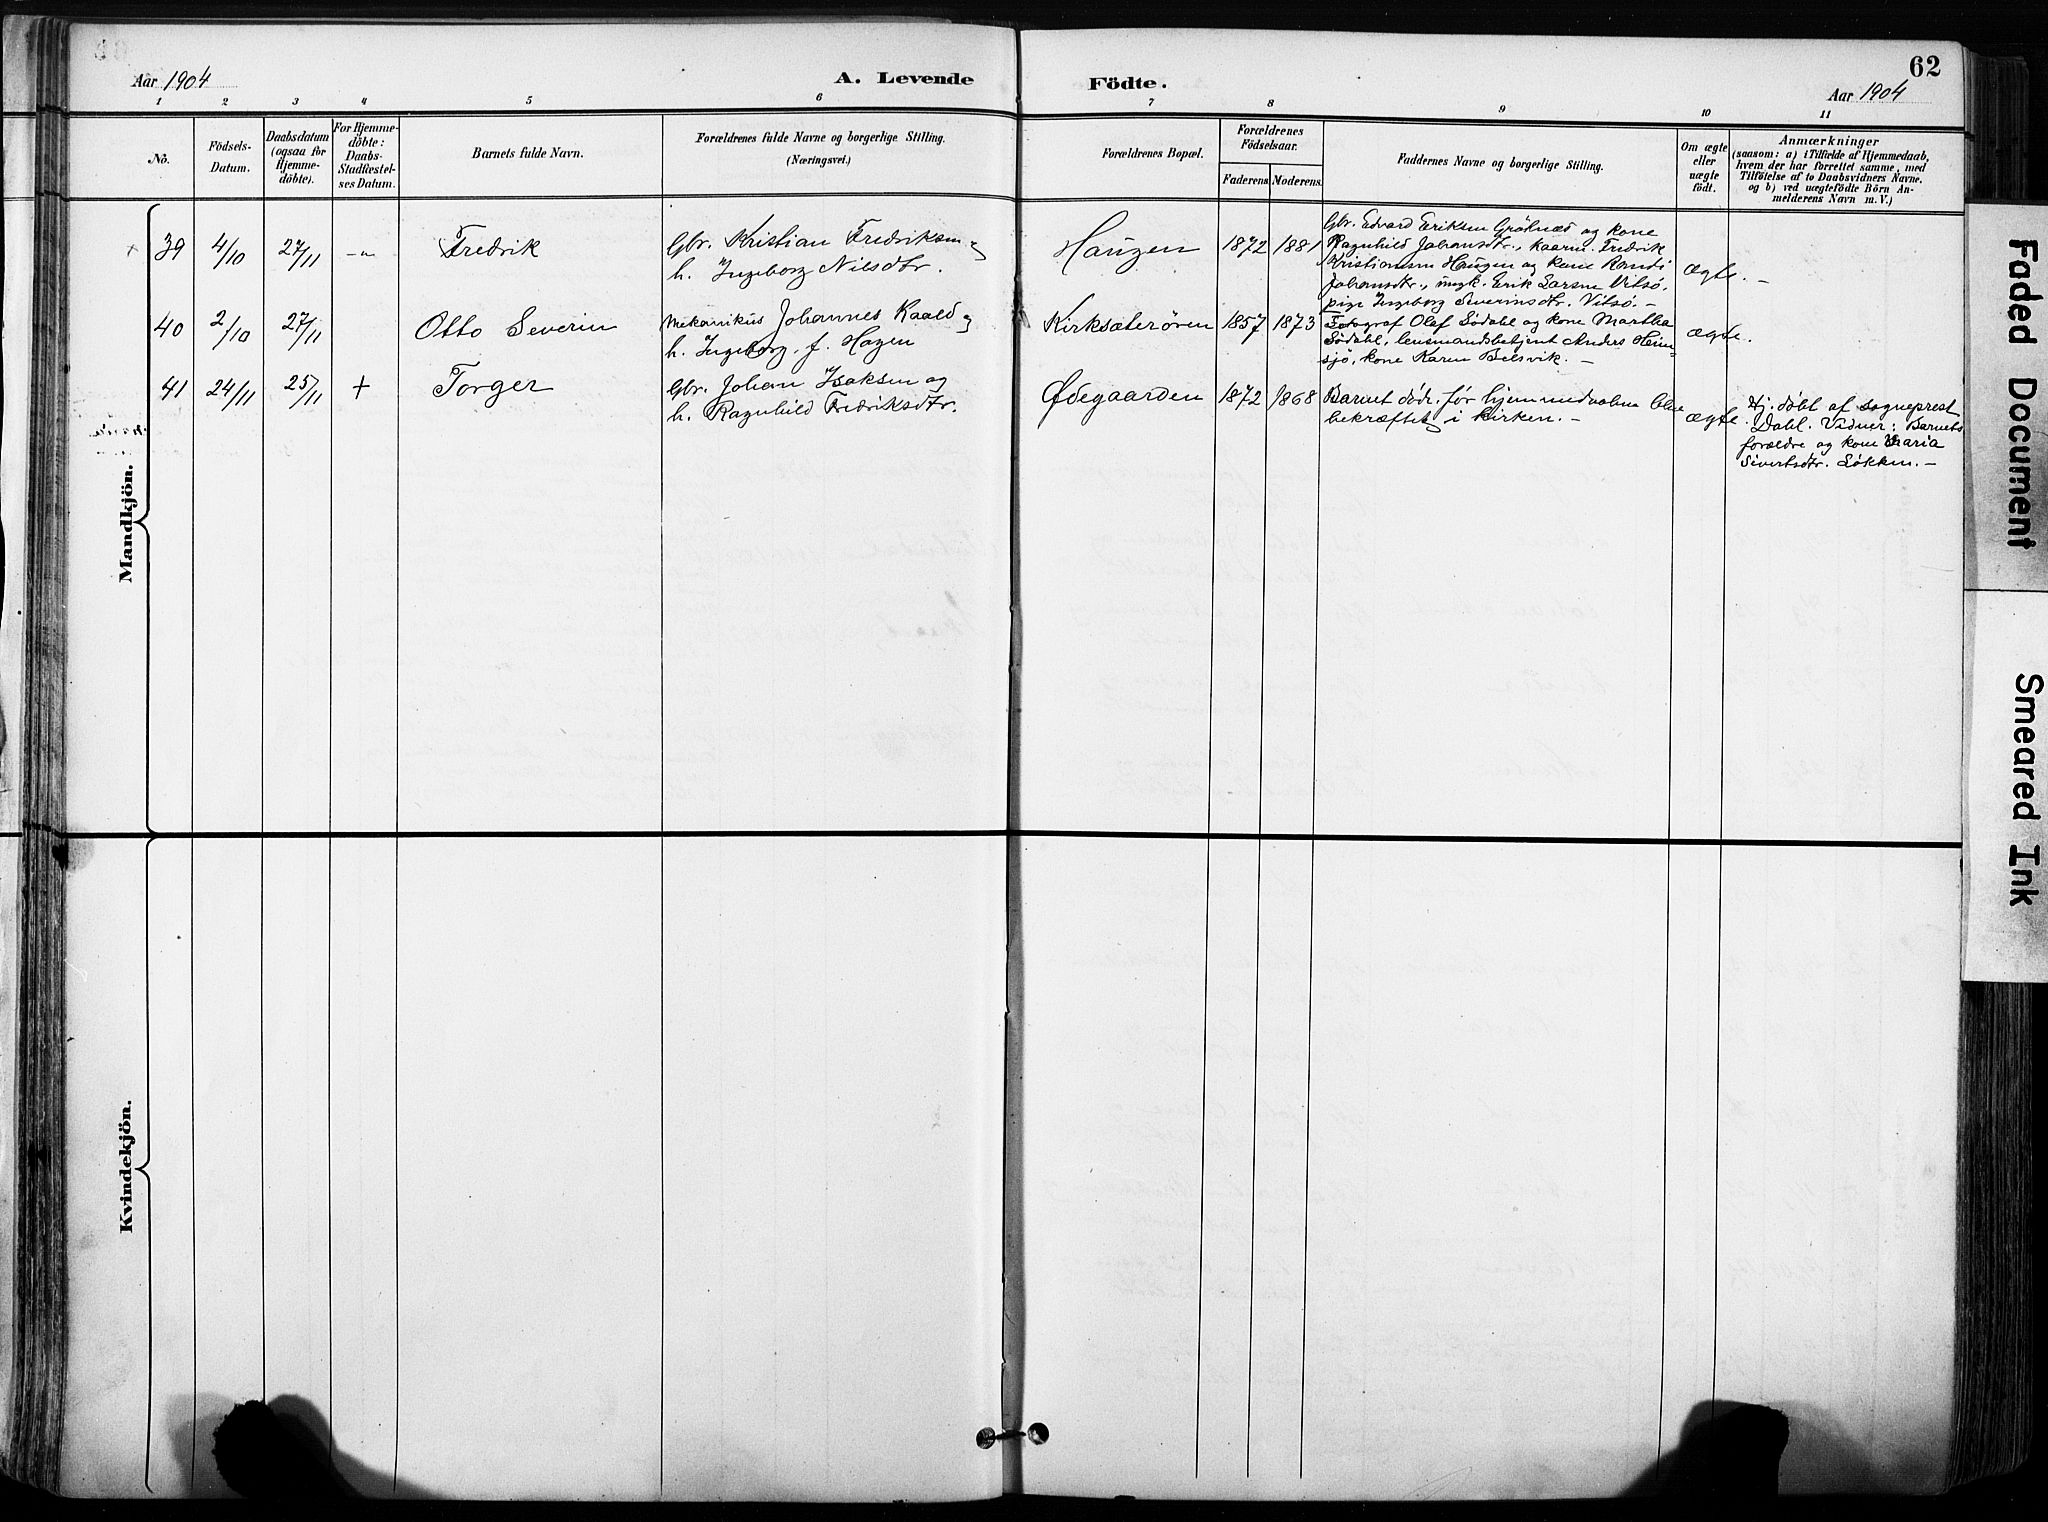 62
Aar 1904
A. Levende Födte.
Aar 1904
1 2 3 4 5 6 7 8 9 10 11
No.
Födsels-
Datum.
Daabsdatum
(ogsaa for
Hjemme-
döbte).
For Hjemme-
döbte:
Daabs-
Stadfæstel-
ses Datum.
Barnets fulde Navn.
Forældrenes fulde Navne og borgerlige Stilling.
(Næringsvei.)
Forældrenes Bopæl.
Forældrenes
Födselsaar.
Faderens. Moderens.
Faddernes Navne og borgerlige Stilling.
Om ægte
eller
uægte
födt.
Anmærkninger
(saasom: a) i Tilfælde af Hjemmedaab,
hvem der har forrettet samme, med
Tilföielse af to Daabsvidners Navne.
og b) ved uægtefödte Börn An-
melderens Navn m. V.)
Mandkjön.
39 4/10 27/11 -"- Fredrik
Gbr. Kristian Fredriksen og
h. Ingeborg Nilsdtr.
Haugen 1872 1881
Gbr. Edvard Eriksen Gröthnes og kone
Ragnhild Johansdtr., kaarm. Fredrik
Kristiansen Haugen og kone Randi
Johansdtr., ungk. Erik Larsen Vitsö,
pige Ingeborg Severinsdtr. Vitsö. -
ægte. -
40 2/10 27/11 Otto Severin
Mekanikus Johannes Kaald og
h. Ingeborg, f. Hagen
Kirksæterören 1857 1873
Fotograf Olaf Södahl og kone Martha
Södahl, lensmandsbetjent Anders Heim-
sjö, kone Karen Belsvik. -
ægte.
41 24/11 25/11 + Torger
Gbr. Johan Isaksen og
h. Ragnhild Fredriksdtr.
Ødegaarden 1872 1868
Barnet döde før hjemmedaaben blev
bekræftet i kirken. -
ægte.
Hj. döbt af sogneprest
Dahl. Vidner: Barnets
forældre og kone Maria
Sivertsdtr. Søkken. -
Kvindekjön.
Faded Document
Smeared Ink